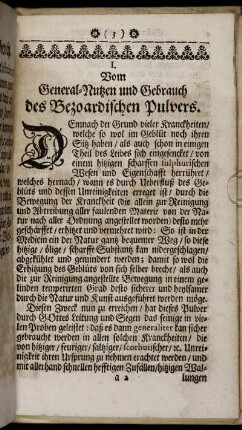 ( 3 )
I.
Vom
General-Nutzen und Gebrauch
des Bezoardischen Pulvers.
DEnnach der Grund vieler Kranckheiten/
welche so wol im Geblüt noch ihren
Sitz haben / als auch schon in einigen
Theil des Leibes sich eingesencket / von
einem hitzigen scharffen sulphurischen
Wesen und Eigenschafft herrühret/
welches hernach / wann es durch Ueberfluß des Ge-
blüts und dessen Unreinigkeiten erreget ist / durch die
Bewegung der Kranckheit (die allein zur Reinigung
und Abtreibung aller faulenden Materie von der Na-
tur nach aller Ordnung angestellet worden) desto mehr
geschärffet / erhitzet und vermehret wird: So ist in der
Medicin en der Natur gantz bequemer Weg / so diese
hitzige / ölige / scharffe Substantz kan nidergeschlagen/
abgekühlet und gemindert werden; damit so wol die
Erhitzung des Geblüts von sich selber breche / als auch
die zur Reinigung angestellte Bewegung in einem ge-
linden temperirten Grad desto sicherer und heylsamer
durch die Natur und Kunst ausgeführet werden möge.
Diesen Zweck nun zu erreichen / hat dieses Pulver
durch GOttes Leitung und Segen das seinige in vie-
len Proben geleistet / daß es dann generaliter kan sicher
gebrauchet werden in allen solchen Kranckheiten / die
von hitziger / feuriger / saltziger / scorbutischer / &c. Unrei-
nigkeit ihren Ursprung zu nehmen erachtet werden / und
mit allerhand schnellen hefftigen Zufällen / hitzigen Wal-
a 2
lungen